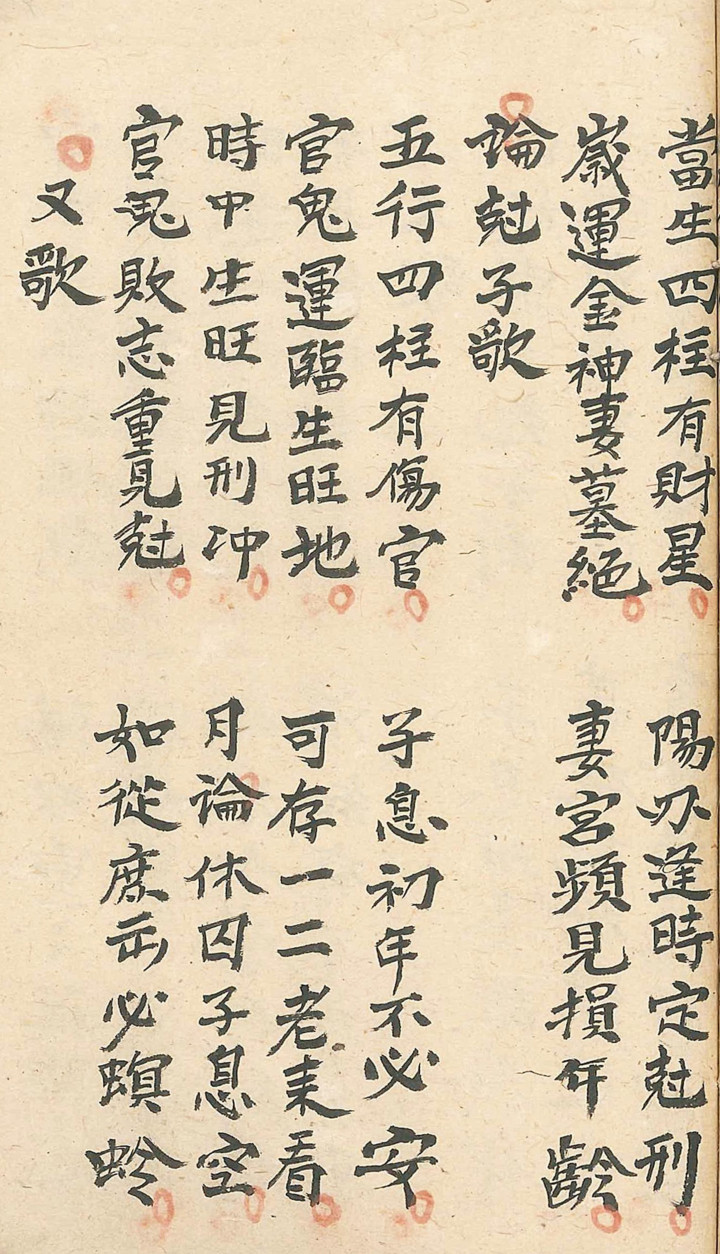 當生四柱有財星　陽刃逢時定尅刑
嵗運金神妻墓絕　妻宮頻見損年齡
論尅子歌
五行四柱有傷官　子息初年不必安
官鬼運臨生旺地　可存一二老来看
時中生旺見刑冲　月論休囚子息空
官鬼敗志重見尅　如從庶出必螟蛉
又歌